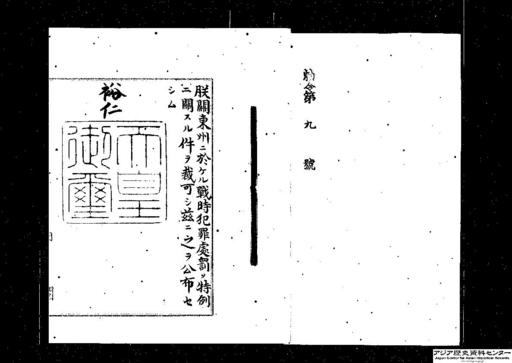 勅令第九號
朕關東州ニ於ケル戰時犯罪處罰ノ特例
ニ關スル件ヲ裁可シ茲ニ之ヲ公布セ
シム
裕仁
天皇
御璽
アジア歴史資料センター
Japan Center for Asian Historical Records